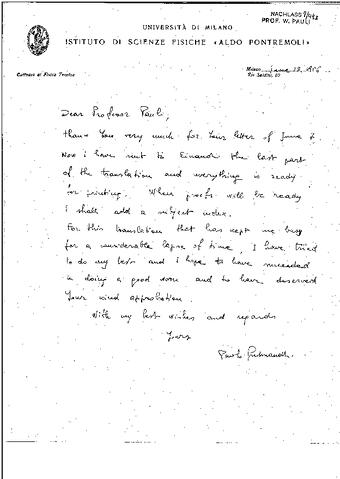 NACHLASS
PROF. W. PAULI
UNIVERSITÀ DI MILANO
ISTITUTO DI SCIENZE FISICHE «ALDO PONTREMOLI»
Cattedra di Fisica Teorica
Milano, June
Via Saldini, 50
Dear Professor Pauli,
thank you very much for your letter of June 7.
Now i have sent to Einaudi the last part
of the translation and everything is ready
for printing. When proofs will be ready
i shall add a subject index.
For this translation that has kept me busy
for a considerable lapse of time, I have tried
to do my best and i hope to have succeeded
in doing a good work and to have deserved
your kind approbation.
With my best wishes and regards
Yours
Paolo